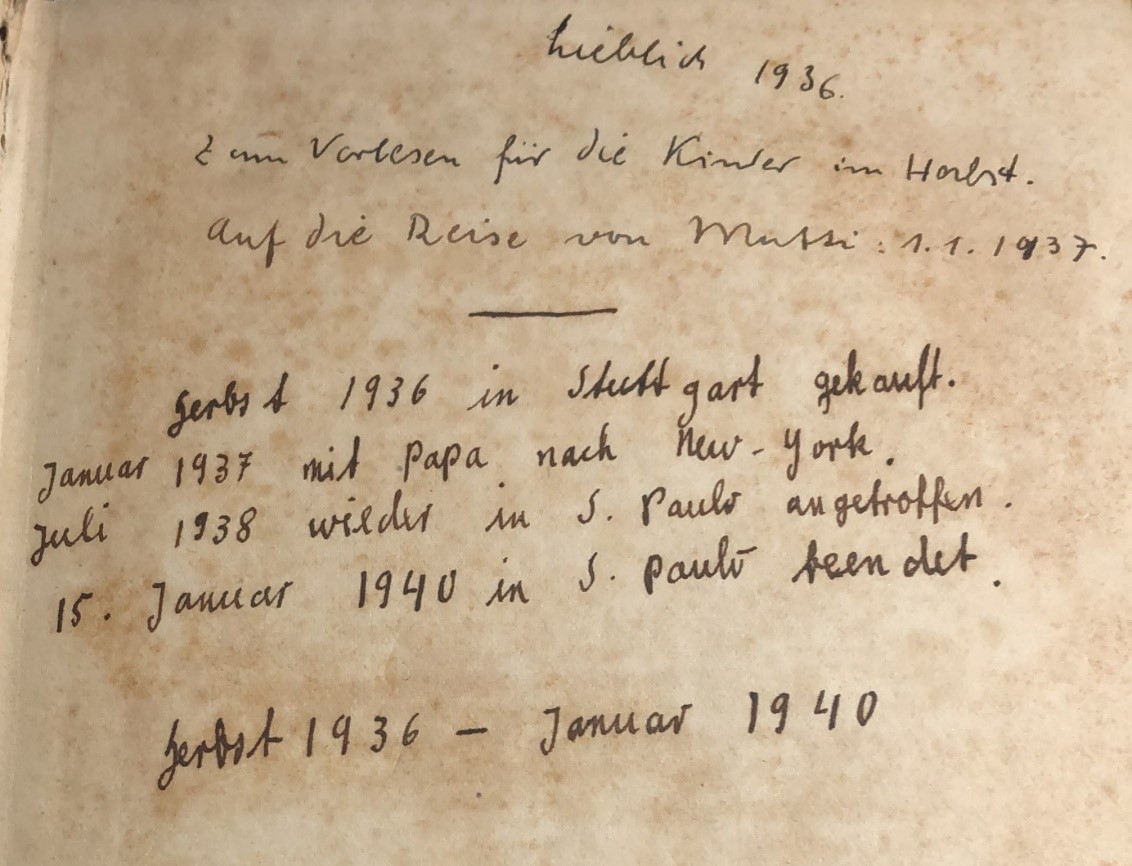 Lieblich 1936.
Zum Vorlesen für die Kinder im Herbst.
Auf die Reise von Mutti: 1.1.1937.
Herbst 1936 in Stuttgart gekauft.
Januar 1937 mit Papa nach New-York.
Juli 1938 wieder in S. Paulo angetroffen.
15. Januar 1940 in S. Paulo beendet.
Herbst 1936 – Januar 1940